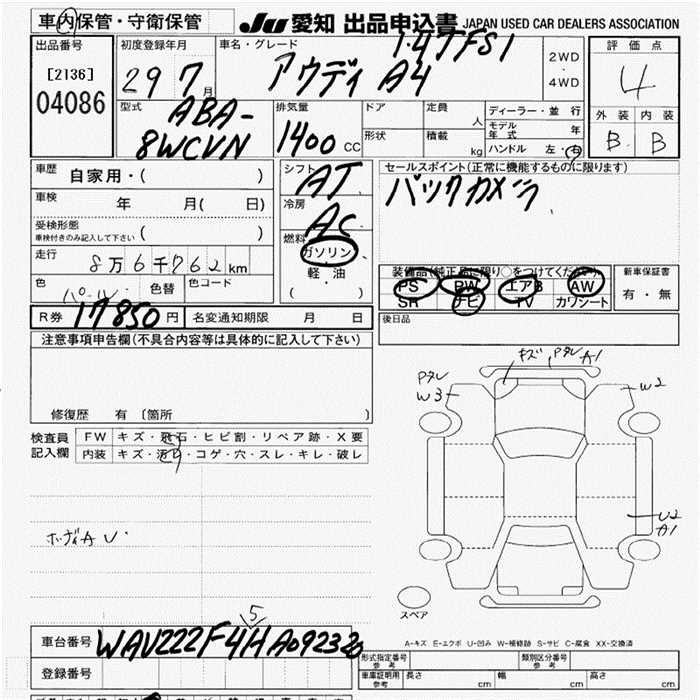 車内保管・守衛保管
JU 愛知 出品申込書 JAPAN USED CAR DEALERS ASSOCIATION
出品番号
[2136]
04086
初度登録年月
29 7月
車名・グレード
1.4TFSI
アウディ A4
2WD
・
4WD
評価点
4
外装 内装
B B
型式
ABA-
8WCVN
排気量
1400 CC
ドア
形状
定員
人
積載
kg
ディーラー・並行
モデル年式
年
ハンドル 左・右
車歴
自家用・( )
車検
年 月( 日)
受検形態
車検付きのみ記入して下さい ( )
走行
8万6千762km
色
パール
色替
色コード
R券 17850円
名変通知期限 月 日
シフト
AT
冷房
AC
燃料
ガソリン
軽・油
( )
セールスポイント(正常に機能するものに限ります)
バックカメラ
装備品(純正品に限り○をつけてください)
PS PW エアB AW
SR ナビ TV カワシート
新車保証書
有・無
後日品
注意事項申告欄(不具合内容等は具体的に記入して下さい)
修復歴 有〔箇所 〕
検査員
記入欄
FW キズ・飛石・ヒビ割・リペア跡・X要
内装 キズ・汚れ・コゲ・穴・スレ・キレ・破レ
ボディAU
キズ
A1
W3
W2
U2
A1
スペア
A-キズ E-エクボ U-凹み W-補修跡 S-サビ C-腐食 XX-交換済
5
車台番号 WAVZZZF4HA092320
登録番号
形式指定番号
参考
類別区分番号
参考
車庫証明用
参考
長さ cm
幅 cm
高さ cm